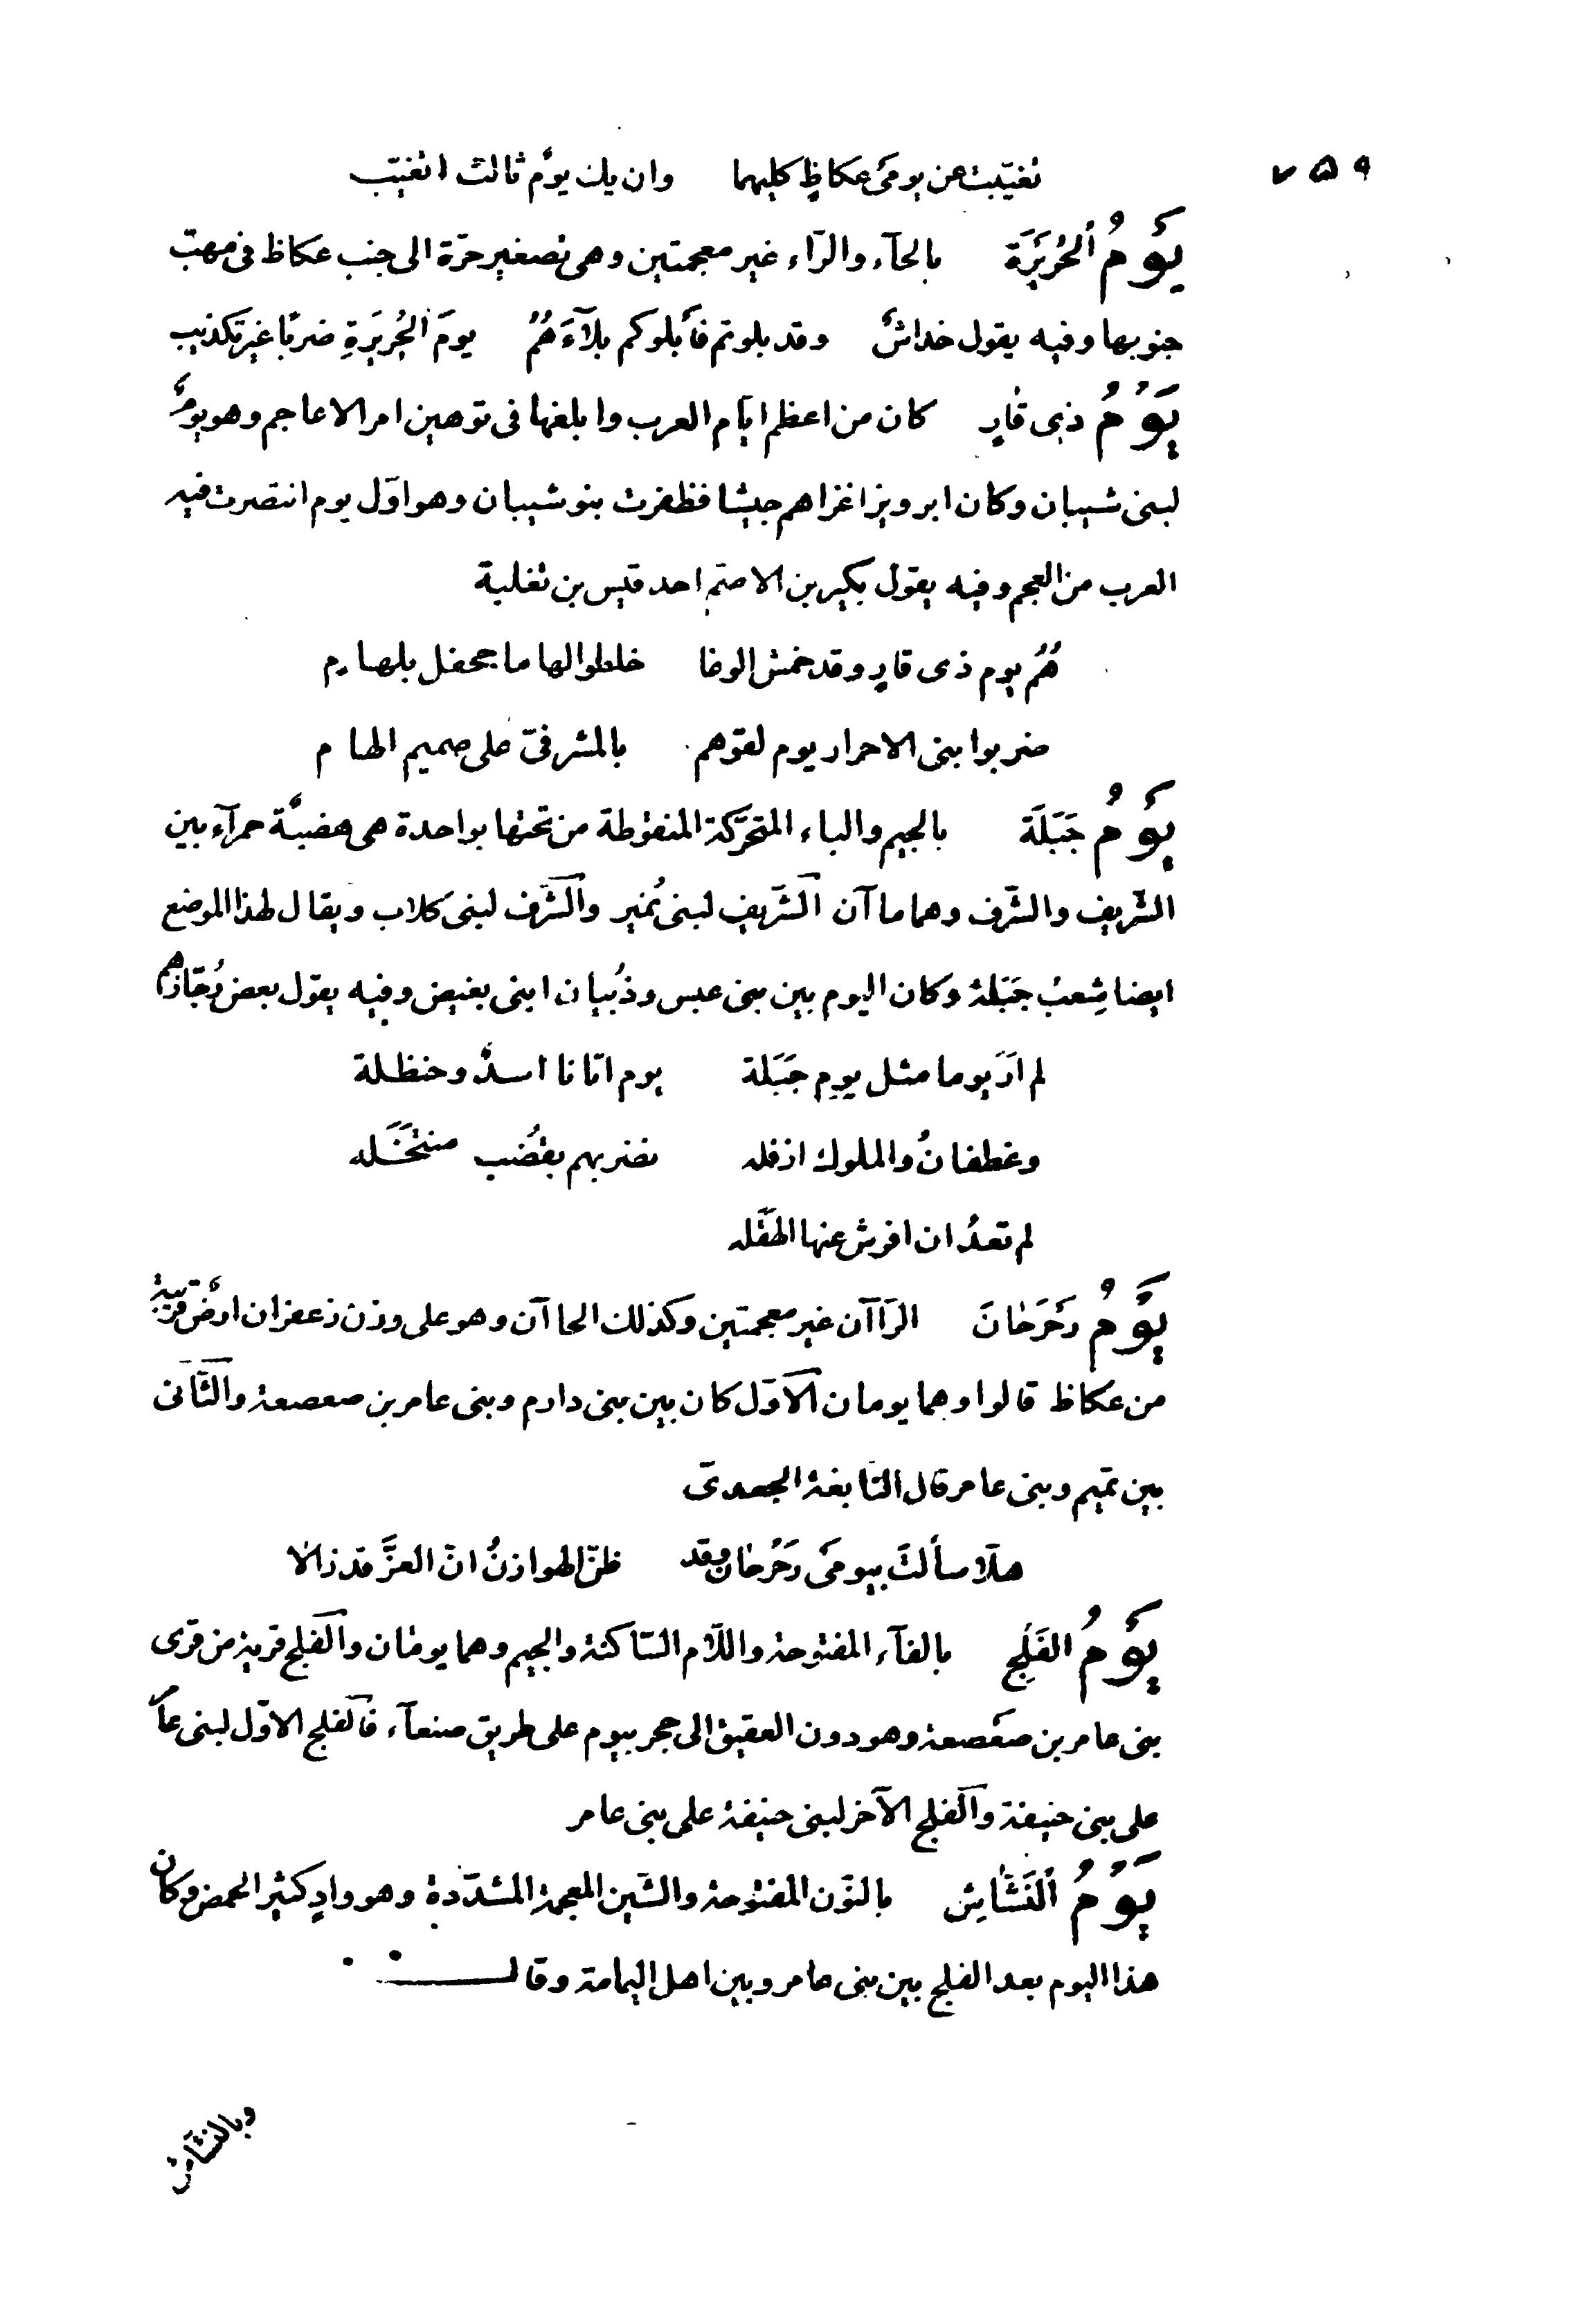 ٧٥٩
تغيّبت عن يومَىْ عكاظٍ كليهما وان يك يومٌ ثالث اتغيّب
يَوْمُ ٱلحُرَيْرَة بالحآء والرّاء غير معجمتين وهى تصغير حرّة الى جنب عكاظ فى مهبّ
جنوبها وفيه يقول خداشٌ وقد بلوتم فأبلوكم بلآءَهُمُ يومَ الحُرَيرَةِ ضربًا غير تكذيب
يَوْمُ ذى قارٍ كان من اعظم ايّام العرب وابلغها فى توهين امر الاعاجم وهو يومٌ
لبنى شيبان وكان ابرويز اغزاهم جيشا فظفرت بنو شيبان وهو اوّل يوم انتصرت فيه
العرب من العجم وفيه يقول بكير بن الاصمّ احد قيس بن ثعلبة
هُمُ يوم ذى قارٍ وقد خمش الوغا خلطوا لهاما جحفل بلهام
ضربوا بنى الاحرار يوم لقوهم بالمشرفىّ على صميم الهام
يَوْمُ جَبَلَة بالجيم والباء المتحرّكة المنقوطة من تحتها بواحدة هى هضبة حمرآء بين
الشّريف والشّرف وهما ماآن الشّريف لبنى نُمير والشّرف لبنى كلاب ويقال لهذا الموضع
ايضا شِعبُ جَبَلة وكان اليوم بين بنى عبس وذُبيان ابنى بغيض وفيه يقول بعض رُجّازهم
لم ارَ يوما مثل يوم جَبَلة يوم اتانا اسدٌ وحنظلة
وغطفانُ والملوك ازفله نضربهم بقُضُب منتخَلَه
لم تعدُ ان افرش عنها الصّقله
يَوْمُ رَحْرَحَانَ الرّاآن غير معجمتين وكذلك الحاآن وهو على وزن زعفران ارضٌ قريبة
من عكاظ قالوا وهما يومان الاوّل كان بين بنى دارم وبنى عامر بن صعصعة والثّانى
بين تميم وبنى عامر قال النّابغة الجعدىّ
هلّا سألتَ بيومَىْ رَحْرَحَان وقد ظنّ الهوازنُ انّ العزَّ قد زالا
يَوْمُ الفَلْجِ بالفآء المفتوحة واللّام السّاكنة والجيم وهما يومان والفلج قرية من قرى
بنى عامر بن صعصعة وهو دون العقيق الى حجر بيوم على طريق صنعآء فالفلج الاوّل لبنى عامر
على بنى حنيفة والفلج الآخر لبنى حنيفة على بنى عامر
يَوْمُ ٱلنَّشَّاشِ بالنّون المفتوحة والشّين المعجمة المشدّدة وهو وادٍ كثير الحمض وكان
هذا اليوم بعد الفلج بين بنى عامر وبين اهل اليمامة وقال
وبالنشّاش